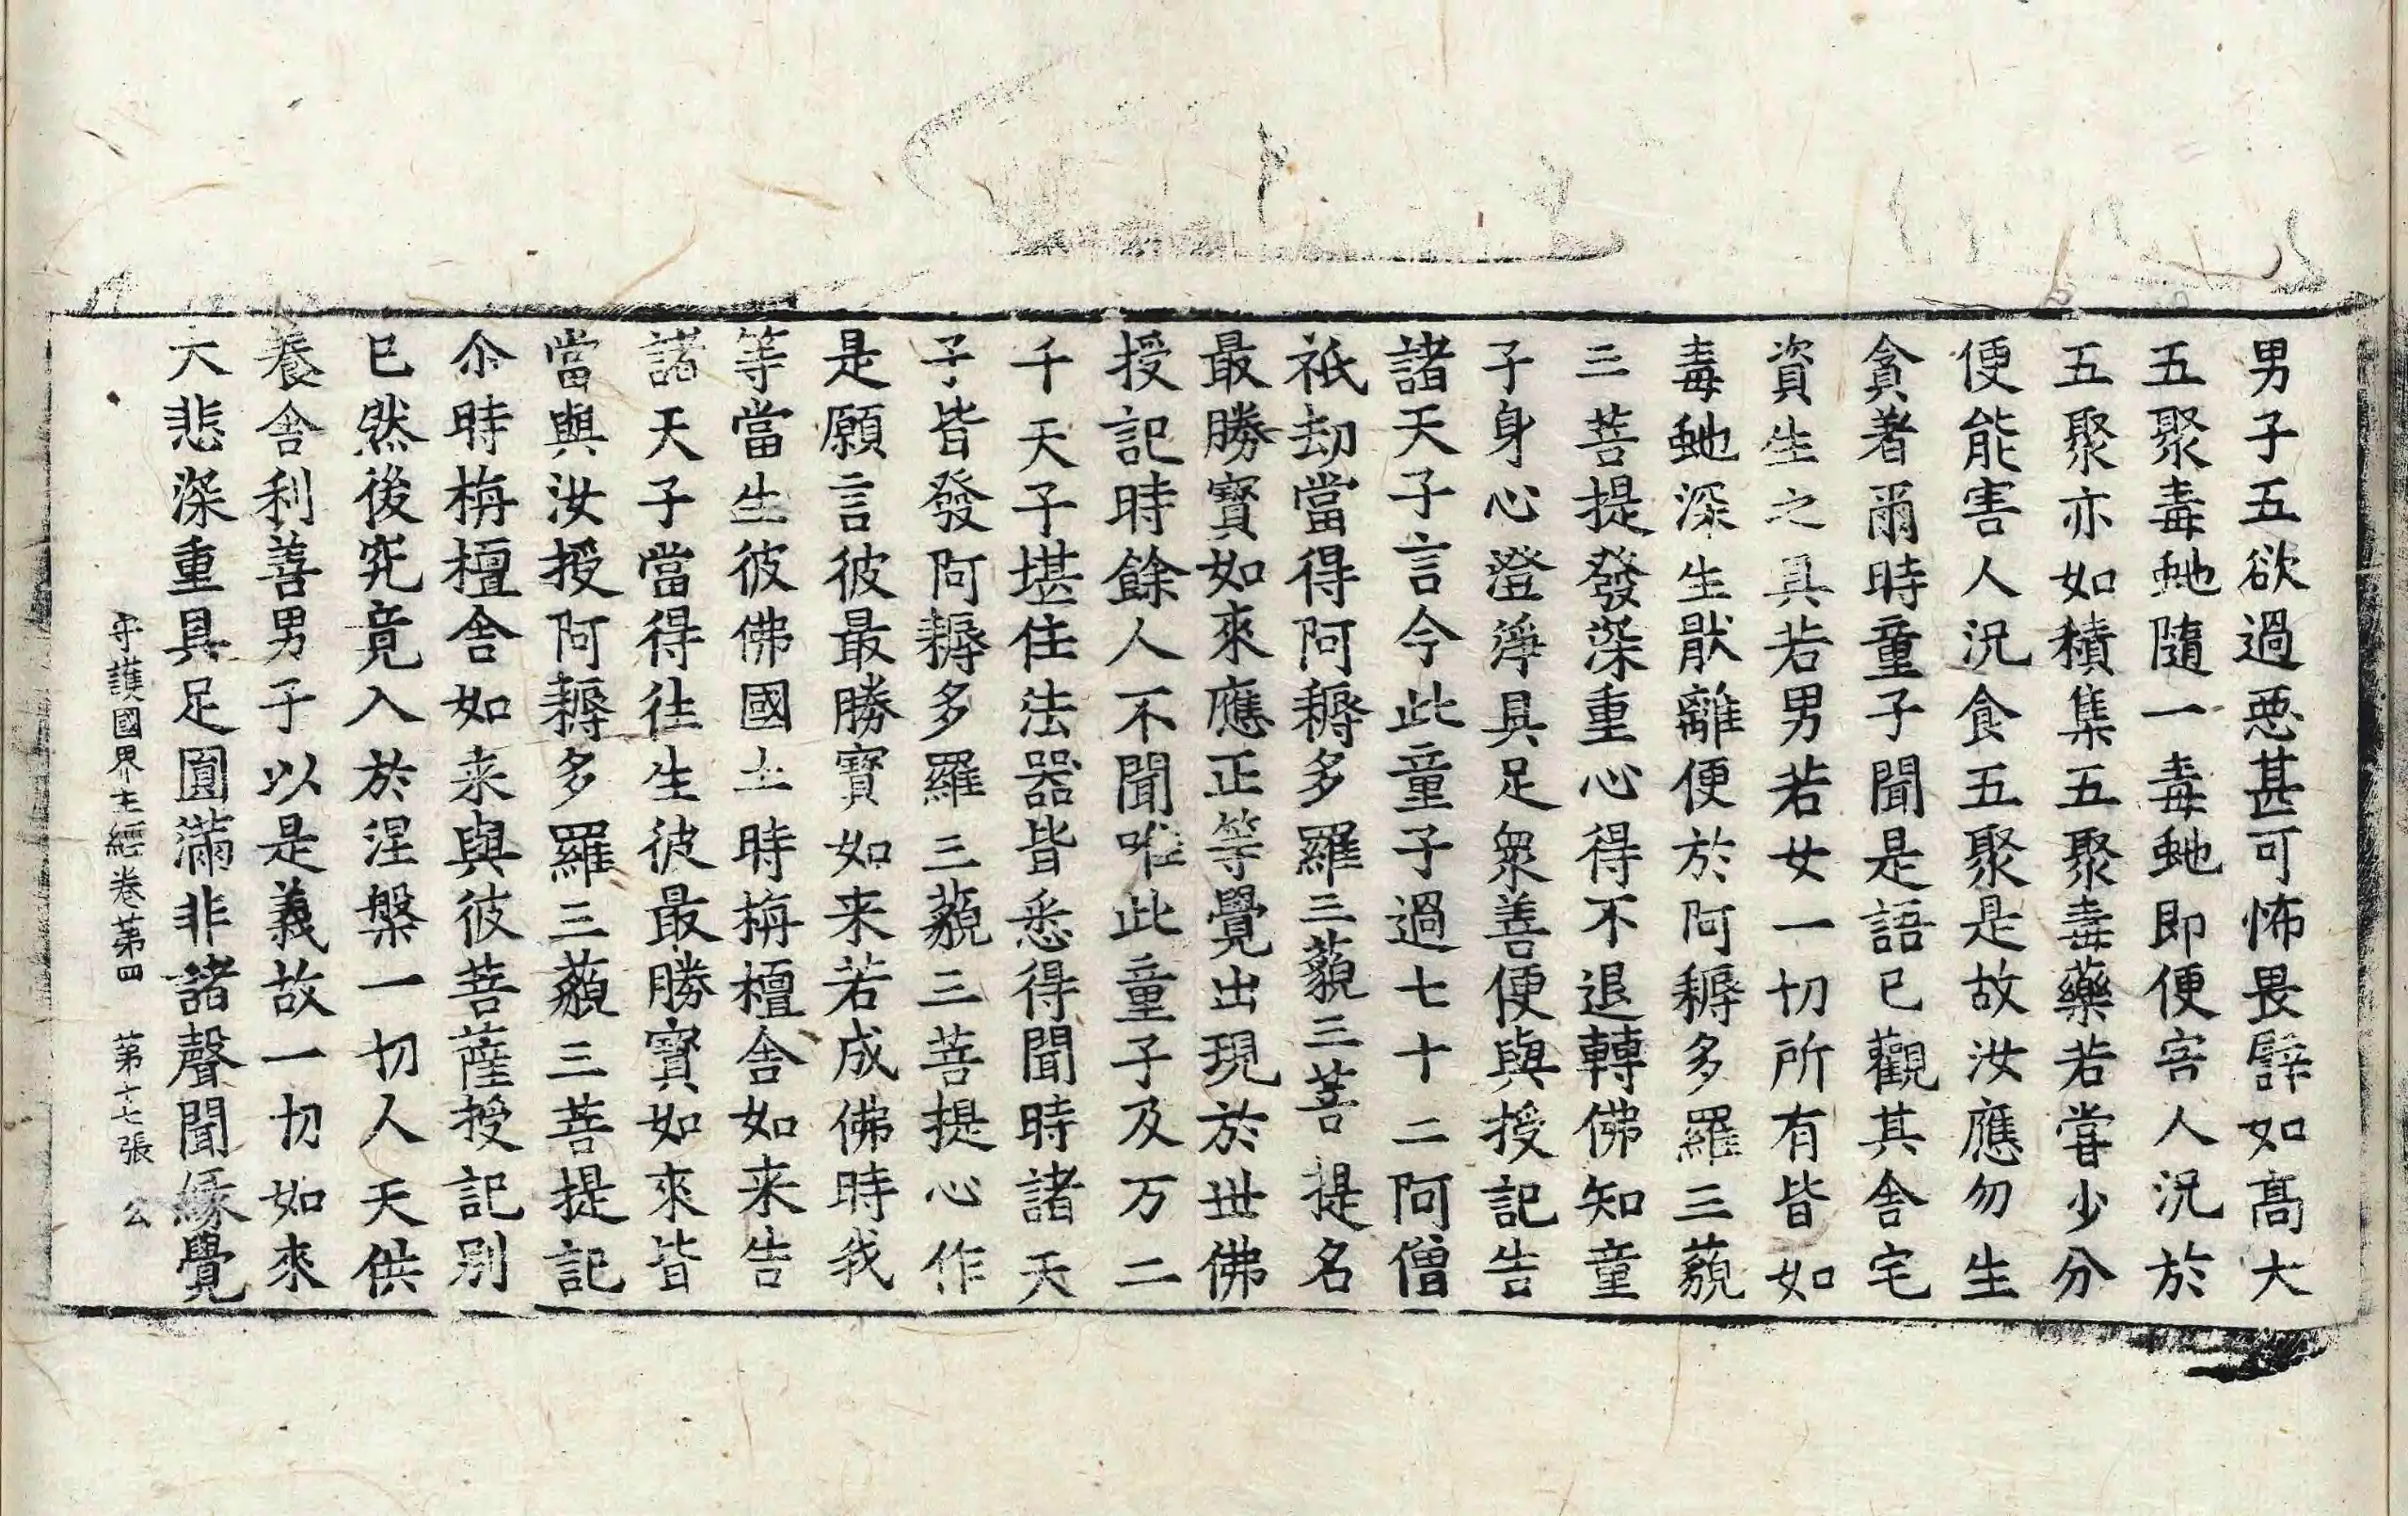 男子五欲過惡甚可怖畏譬如高大
五聚毒虵隨一毒虵即便害人況於
五聚亦如積集五聚毒藥若甞少分
便能害人況食五聚是故汝應勿生
貪著爾時童子聞是語已觀其舍宅
資生之具若男若女一切所有皆如
毒虵深生猒離便於阿耨多羅三藐
三菩提發深重心得不退轉佛知童
子身心澄淨具足衆善便與授記告
諸天子言今此童子過七十二阿僧
祇劫當得阿耨多羅三藐三菩提名
最勝寶如來應正等覺出現於世佛
授記時餘人不聞唯此童子及万二
千天子堪任法器皆悉得聞時諸天
子皆發阿耨多羅三藐三菩提心作
是願言彼最勝寶如来若成佛時我
等當生彼佛國土時栴檀舍如来告
諸天子當得往生彼最勝寶如來皆
當與汝授阿耨多羅三藐三菩提記
尒時栴檀舍如来與彼菩薩授記別
已然後究竟入於涅槃一切人天供
養舍利善男子以是義故一切如來
大悲深重具足圓滿非諸聲聞緣覺
守護國界主經卷第四 第十七張 公